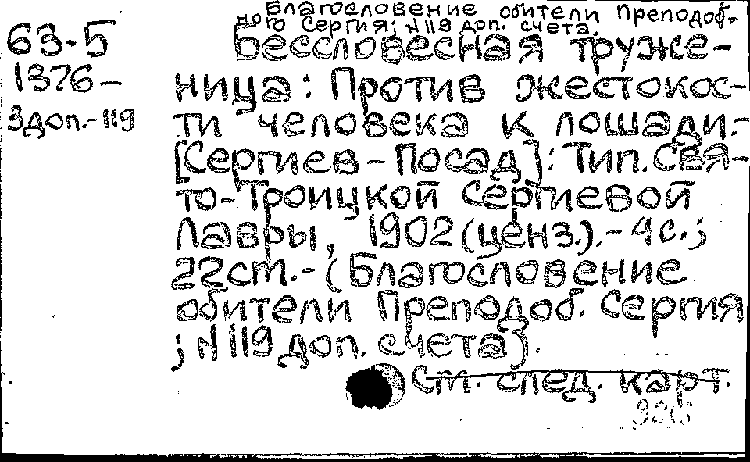 Благословение обители Преподоб-
ного Сергия; №119 доп. счета.
63-5
1376-
3доп.-119
Бессловесная труже-
ница: Против жестокос-
ти человека к лошади.-
[Сергиев-Посад]: Тип. Свя-
то-Троицкой Сергиевой
Лавры, 1902 (ценз.).- 4с.;
22см.- (Благословение
обители Преподоб. Сергия
; №119 доп. счета).
См. след. карт.